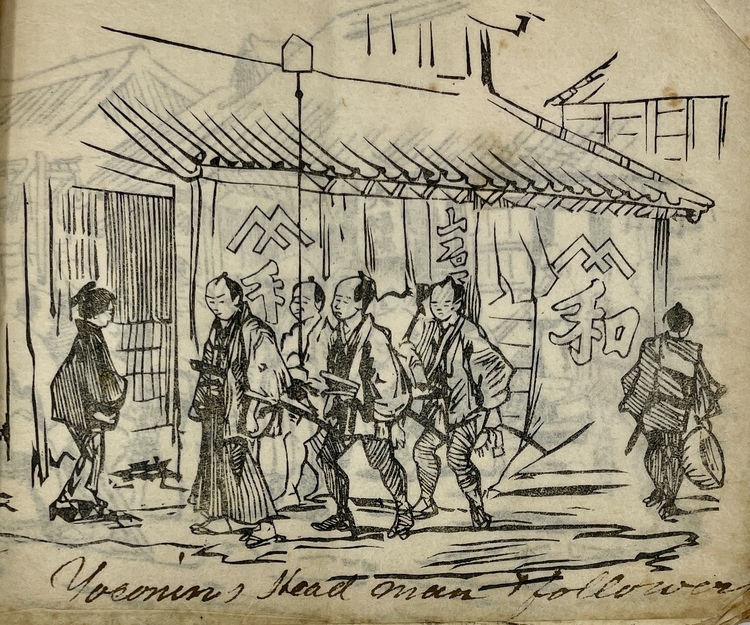 和
山石
和
Yoconin's Head man & followers